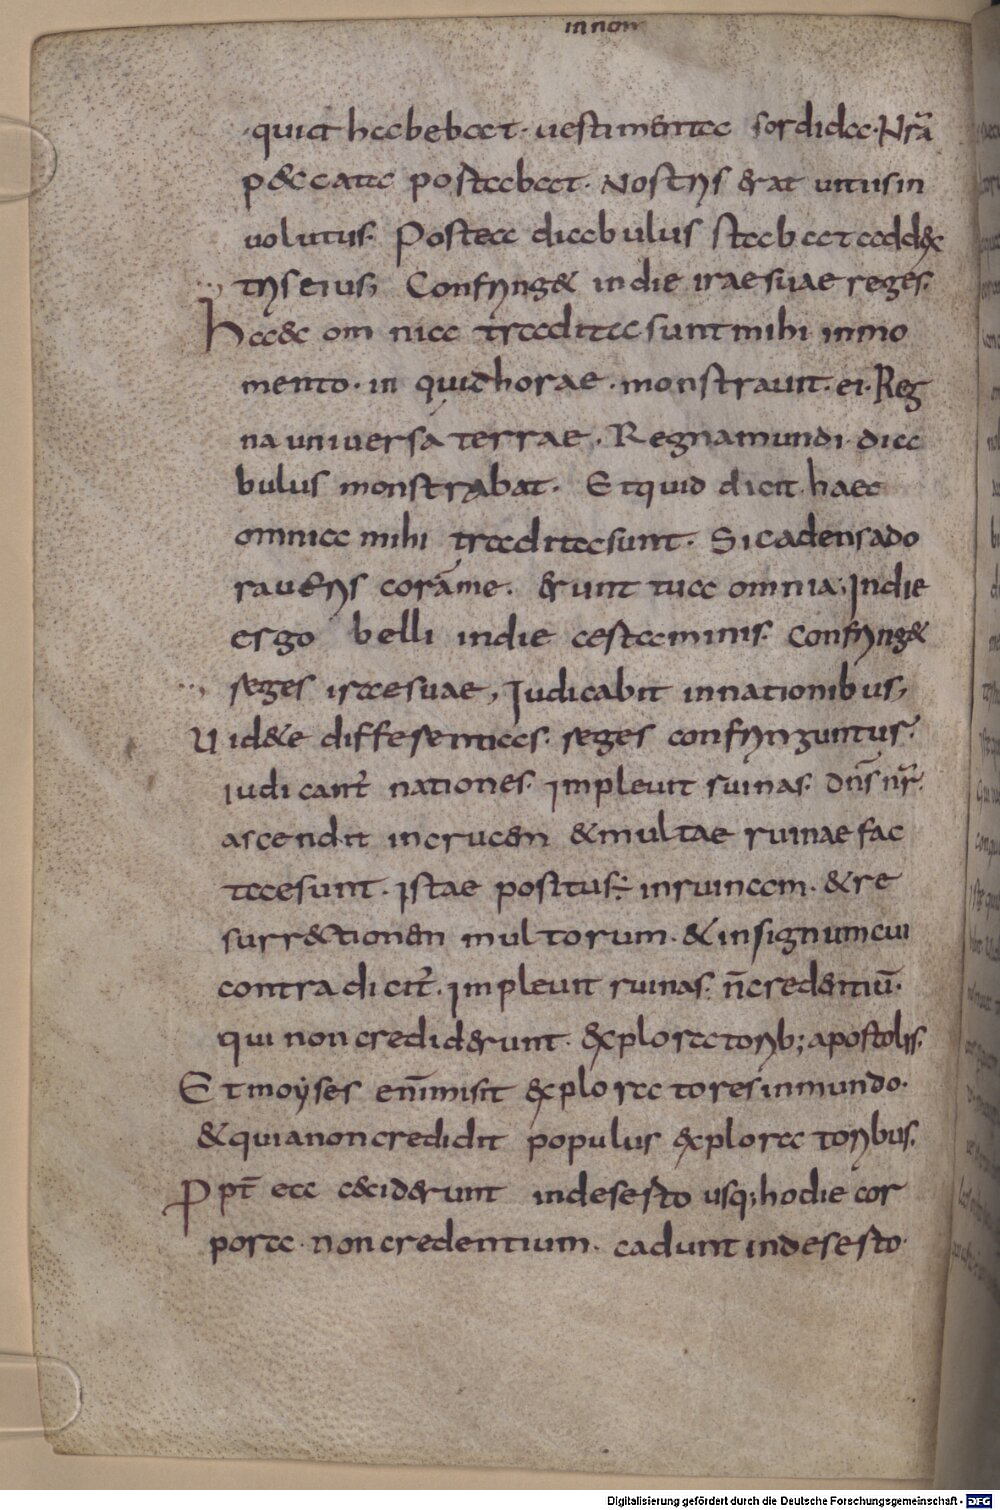 in nom
quia habebat· uestimenta sordida· Nr̄a
peccata portabat· Nostris erat uitiis in
uolutus· Postea diabulus stabat ad dex
tris eius; Confringet in die irae suae reges·
Haec omnia tradita sunt mihi in mo
mento· in quid horae· monstrauit· ei· Reg
na uniuersa terrae· Regna mundi· dia
bulus monstrabat· Et quid dicit· haec
omnia mihi tradita sunt· Si cadens ado
raueris corā me· erunt tua omnia; In die
ergo belli in die certaminis· Confringet
reges irae suae, Iudicabit in nationibus,
Uidete differentias· reges confringuntur·
iudicant̄ nationes· Impleuit ruinas· Dn̄s nr̄·
ascendit in crucem et multae ruinae fac
tae sunt· Iste positus ÷ in ruinam· et re
surrectionem multorum· et in signum cui
contradicit̄· Impleuit ruinas· n̄ credentiū·
qui non crediderunt· exploratorib; apostolis·
Et moyses enī misit exploratores in mundo·
et quia non credidit populus exploratoribus·
Ppt̄ ea ceciderunt in deserto usq; hodie cor
pora· non credentium· cadunt in deserto·
Digitalisierung gefördert durch die Deutsche Forschungsgemeinschaft - DFG